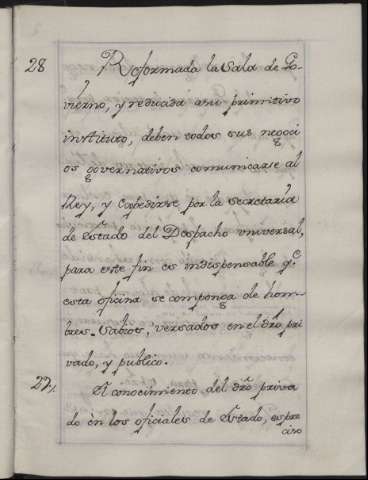 28 Reformada la Sala de Go-
vierno, y reducida a su primitivo
instituto, deben todos sus negoci
os governativos comunicarse al
Rey, y Expedirse por la Secretaría
de Estado del Despacho vniversal,
para este fin es indispensable qe.
esta oficina se componga de hom
bres Sabios, versados en el dro pri
vado, y publico.
El conocimiento del dro priva
do en los oficiales de Estado, es pre
ciso